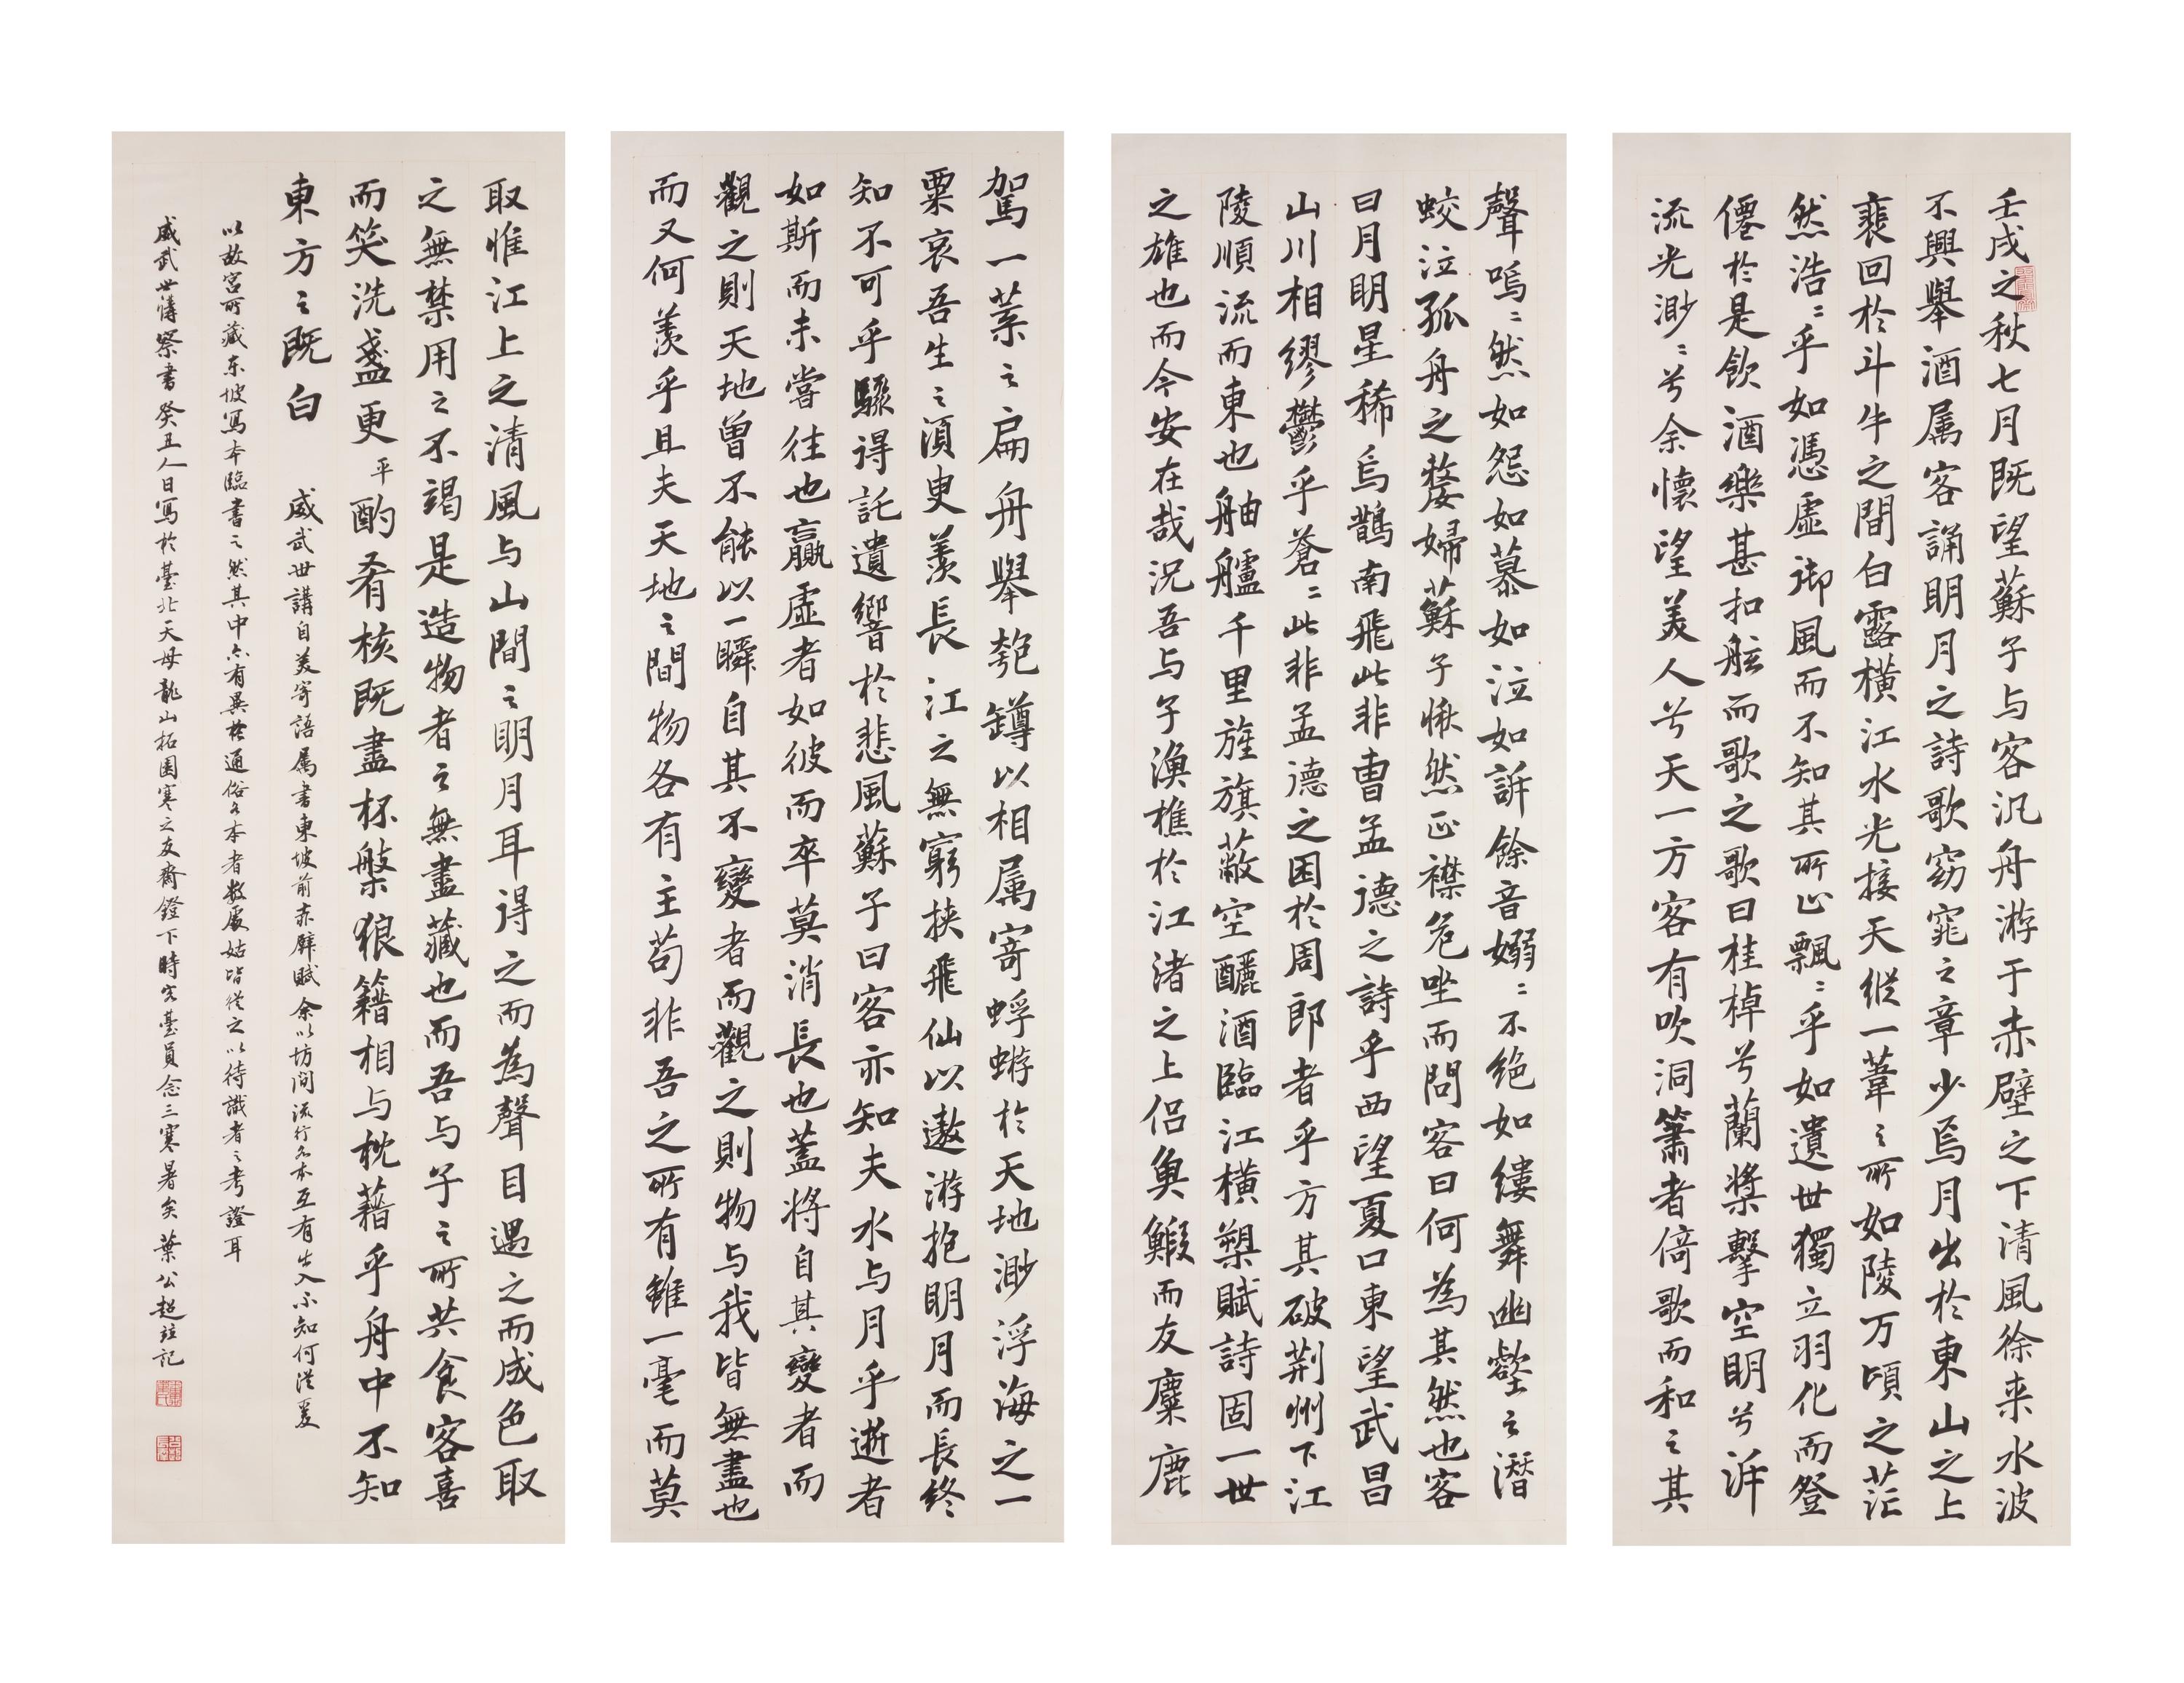 壬戌之秋七月既望蘇子与客汎舟游于赤壁之下清風徐来水波
不興舉酒属客誦明月之詩歌窈窕之章少焉月出於東山之上
裴回於斗牛之間白露橫江水光接天縱一葦之所如陵万頃之茫
然浩〻乎如憑虛御風而不知其所止飄〻乎如遺世獨立羽化而登
僊於是飲酒樂甚扣舷而歌之歌曰桂棹兮蘭槳擊空明兮泝
流光渺〻兮余懷望美人兮天一方客有吹洞簫者倚歌而和之其
聲嗚〻然如怨如慕如泣如訴餘音嫋〻不绝如縷舞幽壑之潛
蛟泣孤舟之嫠婦蘇子愀然正襟危坐而問客曰何為其然也客
曰月明星稀烏鵲南飛此非曹孟德之詩乎西望夏口東望武昌
山川相繆鬱乎蒼〻此非孟德之困於周郎者乎方其破荆州下江
陵順流而東也舳艫千里旌旗蔽空釃酒臨江橫槊賦詩固一世
之雄也而今安在哉況吾与子漁樵於江渚之上侣魚鰕而友麋鹿
駕一葉之扁舟舉匏罇以相属寄蜉蝣於天地渺浮海之一
粟哀吾生之須臾羨長江之無窮挟飛仙以遨游抱明月而長终
知不可乎驟得託遺響於悲風蘇子曰客亦知夫水与月乎逝者
如斯而未嘗往也贏虛者如彼而卒莫消長也蓋将自其變者而
觀之則天地曾不能以一瞬自其不變者而觀之則物与我皆無盡也
而又何羨乎且夫天地之間物各有主苟非吾之所有雖一毫而莫
取惟江上之清風与山間之明月耳得之而為聲目遇之而成色取
之無禁用之不竭是造物者之無盡藏也而吾与子之所共食客喜
而笑洗盞更平酌肴核既盡杯槃狼籍相与枕藉乎舟中不知
東方之既白
威武世講自美寄語属書東坡前赤壁賦余以坊间流行各本互有出入不知何從爰
以故宮所藏东坡寫本臨書之然其中亦有異於通俗各本者数處姑皆從之以待識者之考證耳
威武世講祭書癸丑人日寫於臺北天母龍山柘園寒之友齋鐙下時客臺員念三寒暑矣葉公超註记